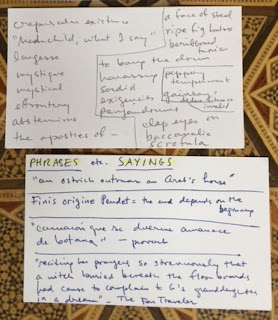 crepuscular existence
"Moonchild, what I say"
largesse
mystique
mystical
effrontery
abstemious
the apostles of —
a face of steel
ripe fig
to bang the drum
harassing
sordid
exigencies
panjandrums
peppery
temperament
clap eyes on
PHRASES etc. SAYINGS
"an ostrich outruns an Arab's horse"
Finis origine pendet = the end depends on the
beginning
camaron que se duerme amanece
de botana" — proverb
"reciting her prayers so strenuously that
a witch buried beneath the floor boards
had cause to complain to G's granddaughter
in a dream" - The Fan Traveler